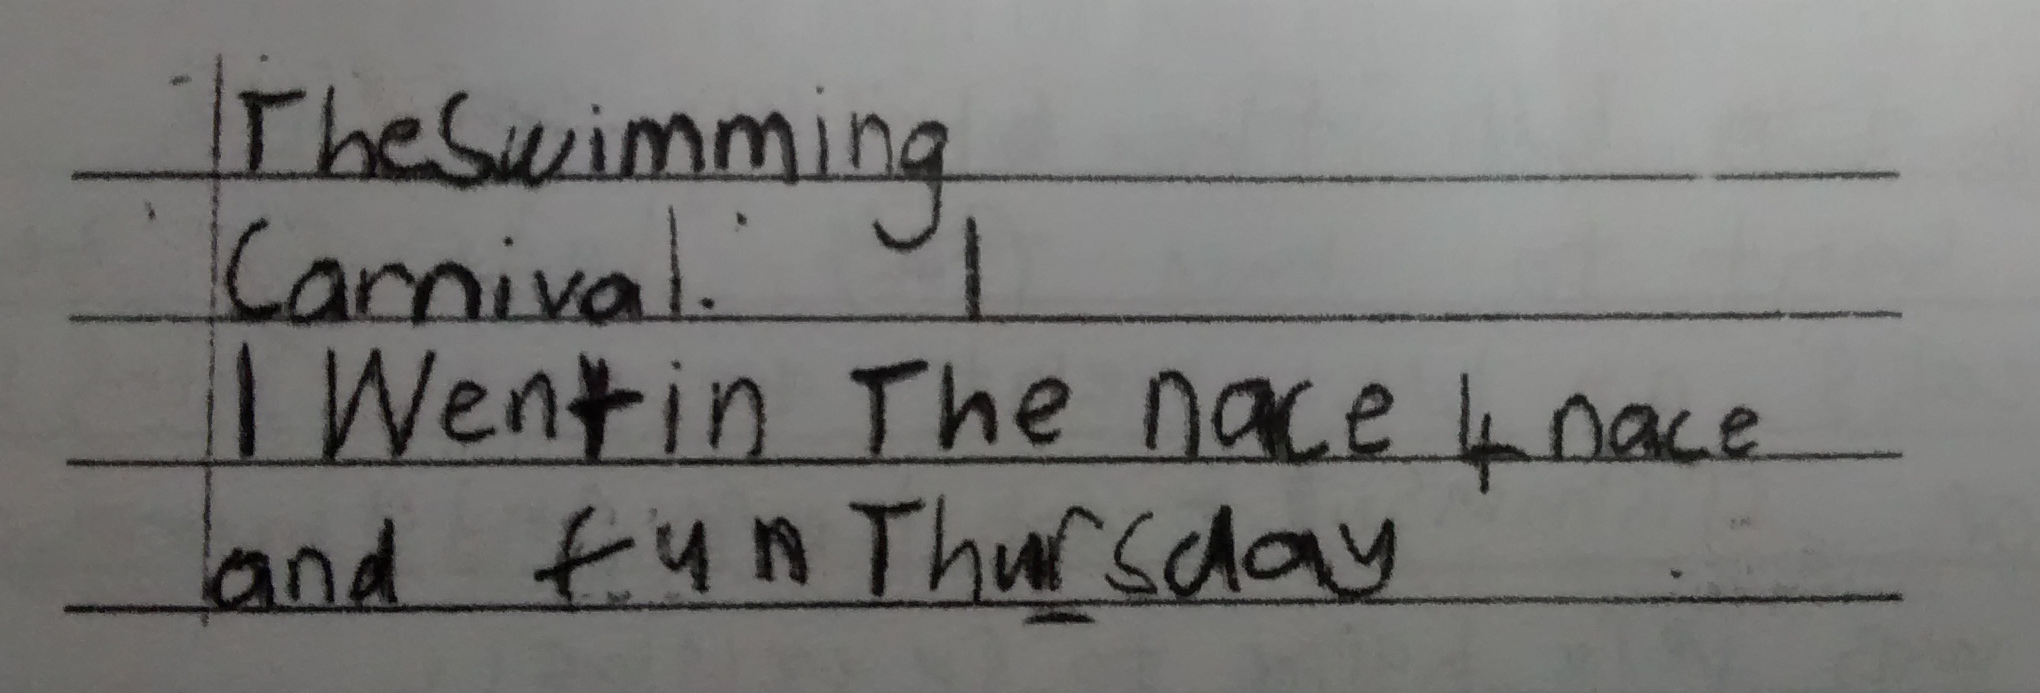 The Swimming
Carnival. I
I Went in The nace 4 nace
and fun Thursday